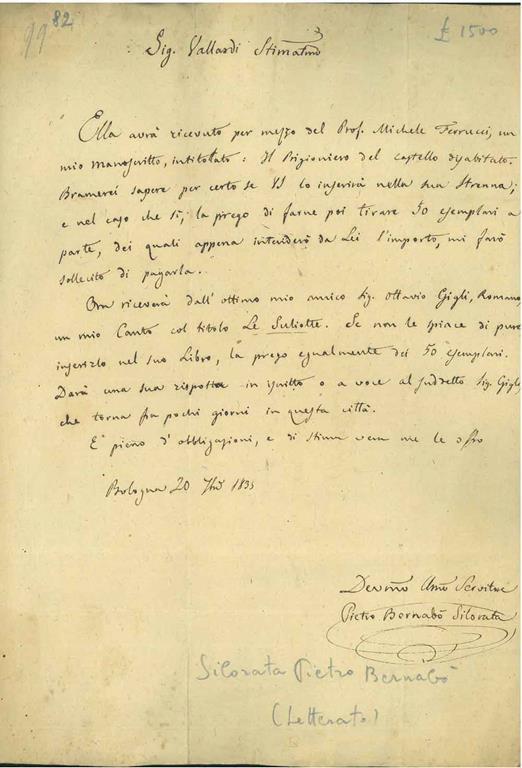 99 82
£ 1500
Sig. Vallardi Stimatmo
Ella avrà ricevuto per mezzo del Prof. Michele Ferrucci, un
mio manoscritto, intitolato: Il Prigioniero del castello disabitato.
Bramerei sapere per certo se VS lo inserirà nella sua Strenna;
e nel caso che sì, la prego di farne poi tirare 50 esemplari a
parte, dei quali appena intenderò da Lei l'importo, mi farò
sollecito di pagarla.
Ora riceverà dall'ottimo mio amico Sig. Ottavio Gigli, Romano,
un mio Canto col titolo Le Suliotte. Se non le spiace di pure
inserirlo nel suo Libro, la prego egualmente dei 50 esemplari.
Darà una sua risposta in iscritto o a voce al suddetto Sig. Gigli
che torna fra pochi giorni in questa città.
E pieno d'obbligazioni, e di stima vera me le offro
Bologna 20 7be 1835
Devmo Amo Servitore
Pietro Bernabò Silorata
Silorata Pietro Bernabò
(Letterato)